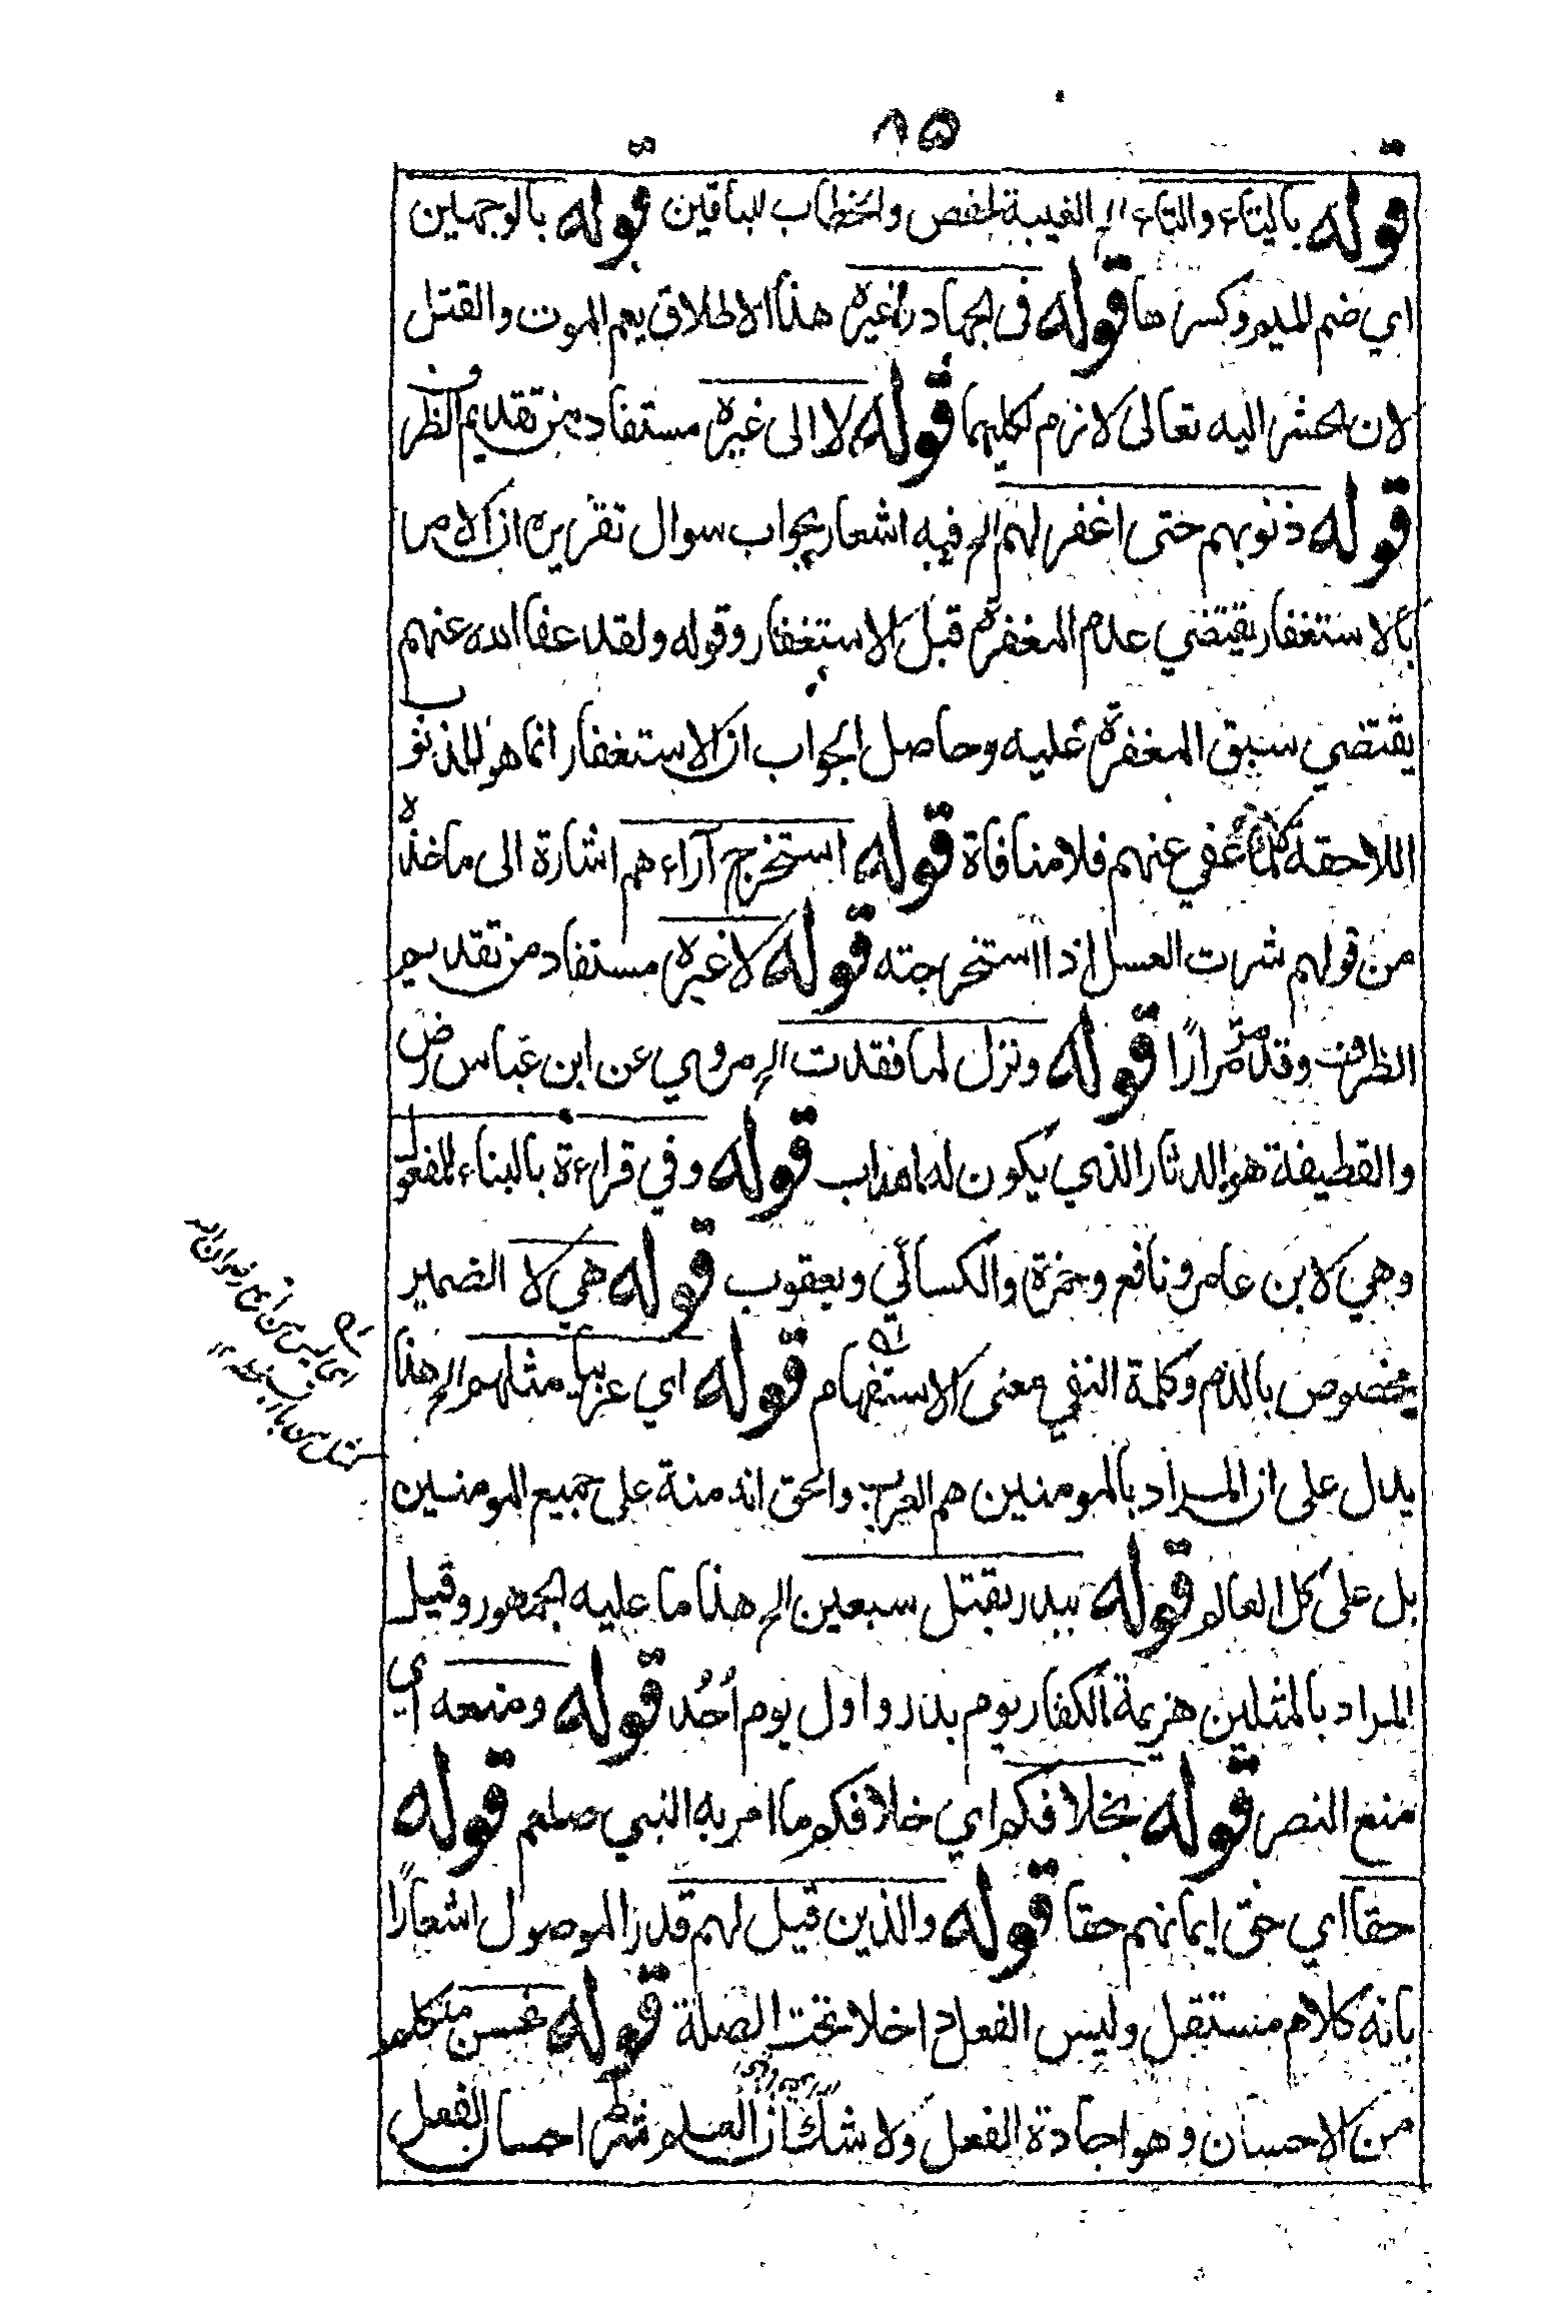 ٨٥
قوله بالياء والتاء الخ الغيبة لحفص والخطاب للباقين قوله بالوجهين
اي ضم الميم وكسرها قوله في الجهاد وغيره هذا الاطلاق يعم الموت والقتل
لان الحشر اليه تعالى لازم لكليهما قوله لا الى غيره مستفاد من تقديم الظرف
قوله ذنوبهم حتى اغفر لهم الخ فيه اشعار بجواب سوال تقريره ان الامر
بالاستغفار يقتضي عدم المغفرة قبل الاستغفار وقوله ولقد عفا الله عنهم
يقتضي سبق المغفرة عليه وحاصل الجواب ان الاستغفار انما هو للذنوب
اللاحقة عفي عنهم فلا منافاة قوله استخرج آراءهم اشارة الى ماخذه
من قولهم شرت العسل اذا استخرجته قوله لا غيره مستفاد من تقديم
الظرف وقد مر مرارًا قوله ونزل لما فقدت الخ مروي عن ابن عباس رض
والقطيفة هو الدثار الذي يكون له اهداب قوله وفي قراءة بالبناء للمفعول
وهي لابن عامر ونافع وحمزة والكسائي ويعقوب قوله هي لا الضمير
مخصوص بالذم وكلمة النفي معنى الاستفهام قوله اي عربيا مثلهم الخ هذا
يدل على ان المراد بالمومنين هم العرب والحق انه منة على جميع المومنين
بل على كل العالم قوله ببدر بقتل سبعين الخ هذا ما عليه الجمهور وقيل
المراد بالمثلين هزيمة الكفار يوم بدر واول يوم اُحُد قوله ومنعه اي
منع النصر قوله بخلافكم اي خلافكم ما امر به النبي صلعم قوله
حقا اي حق ايمانهم حقا قوله والذين قيل لهم قدر الموصول اشعارًا
بانه كلام مستقل وليس الفعل داخلا تحت الصلة قوله محسن متكلما
من الاحسان وهو اجادة الفعل ولا شك ان العلم ثمر احسان الفعل